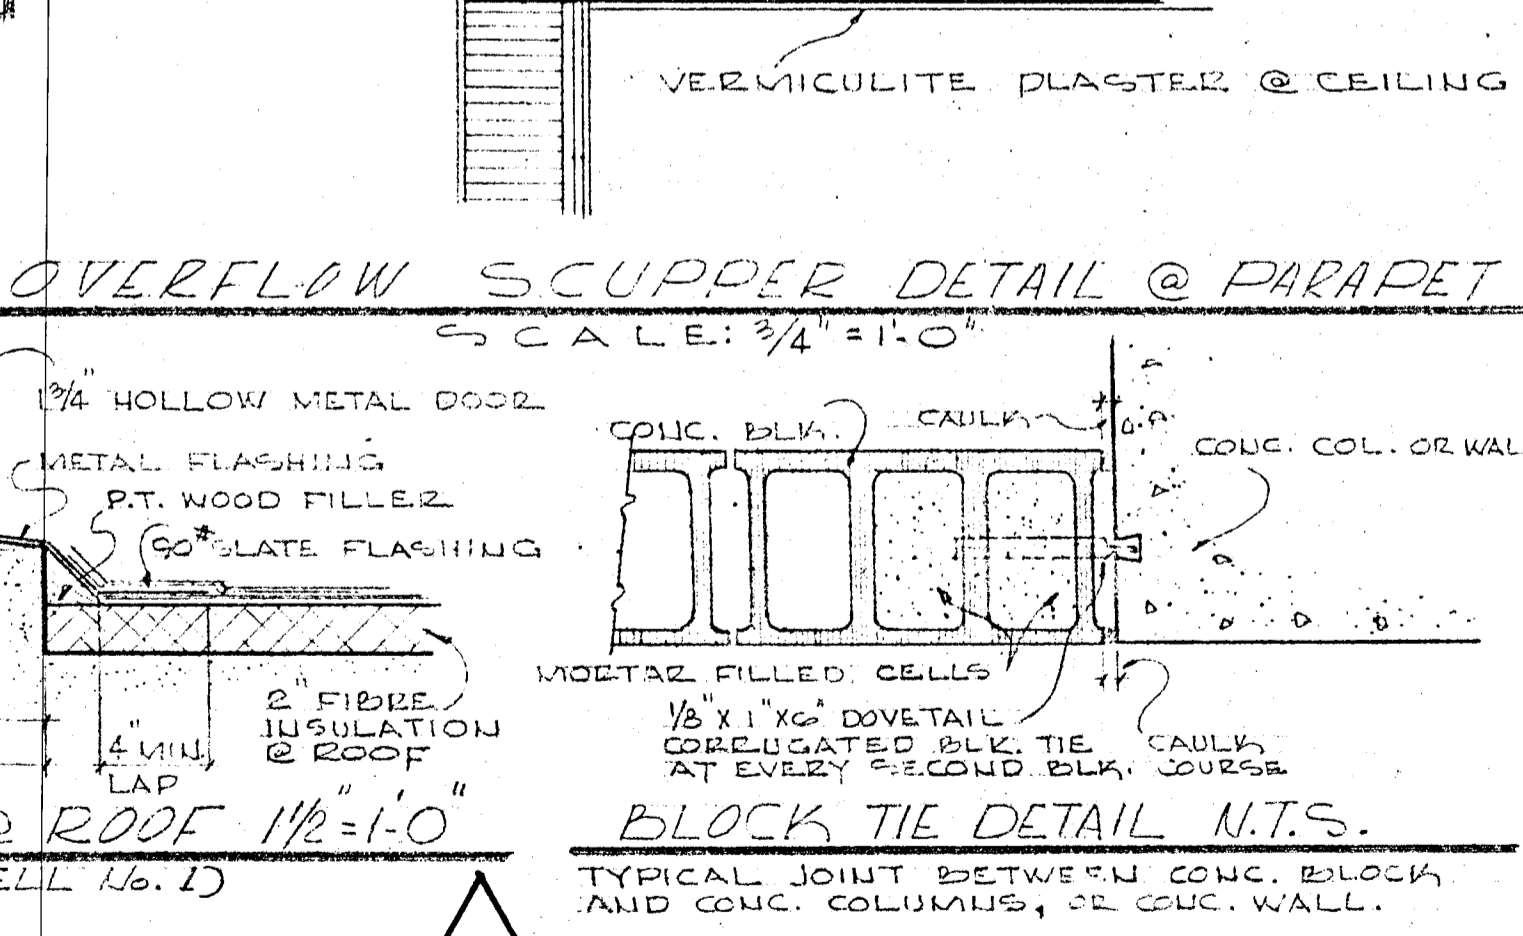 VERMICULITE PLASTER @ CEILING
OVERFLOW SCUPPER DETAIL @ PARAPET
SCALE: 3/4" = 1'-0"
1 3/4" HOLLOW METAL DOOR
METAL FLASHING
P.T. WOOD FILLER
90# SLATE FLASHING
2" FIBRE
INSULATION
@ ROOF
4" MIN.
LAP
ROOF 1 1/2" = 1'-0"
ELL No. 1)
CONC. BLK.
CAULK
CONC. COL. OR WAL
MORTAR FILLED CELLS
1/8" X 1" X 6" DOVETAIL
CORRUGATED BLK. TIE
AT EVERY SECOND BLK. COURSE
CAULK
BLOCK TIE DETAIL N.T.S.
TYPICAL JOINT BETWEEN CONC. BLOCK
AND CONC. COLUMNS, OR CONC. WALL.